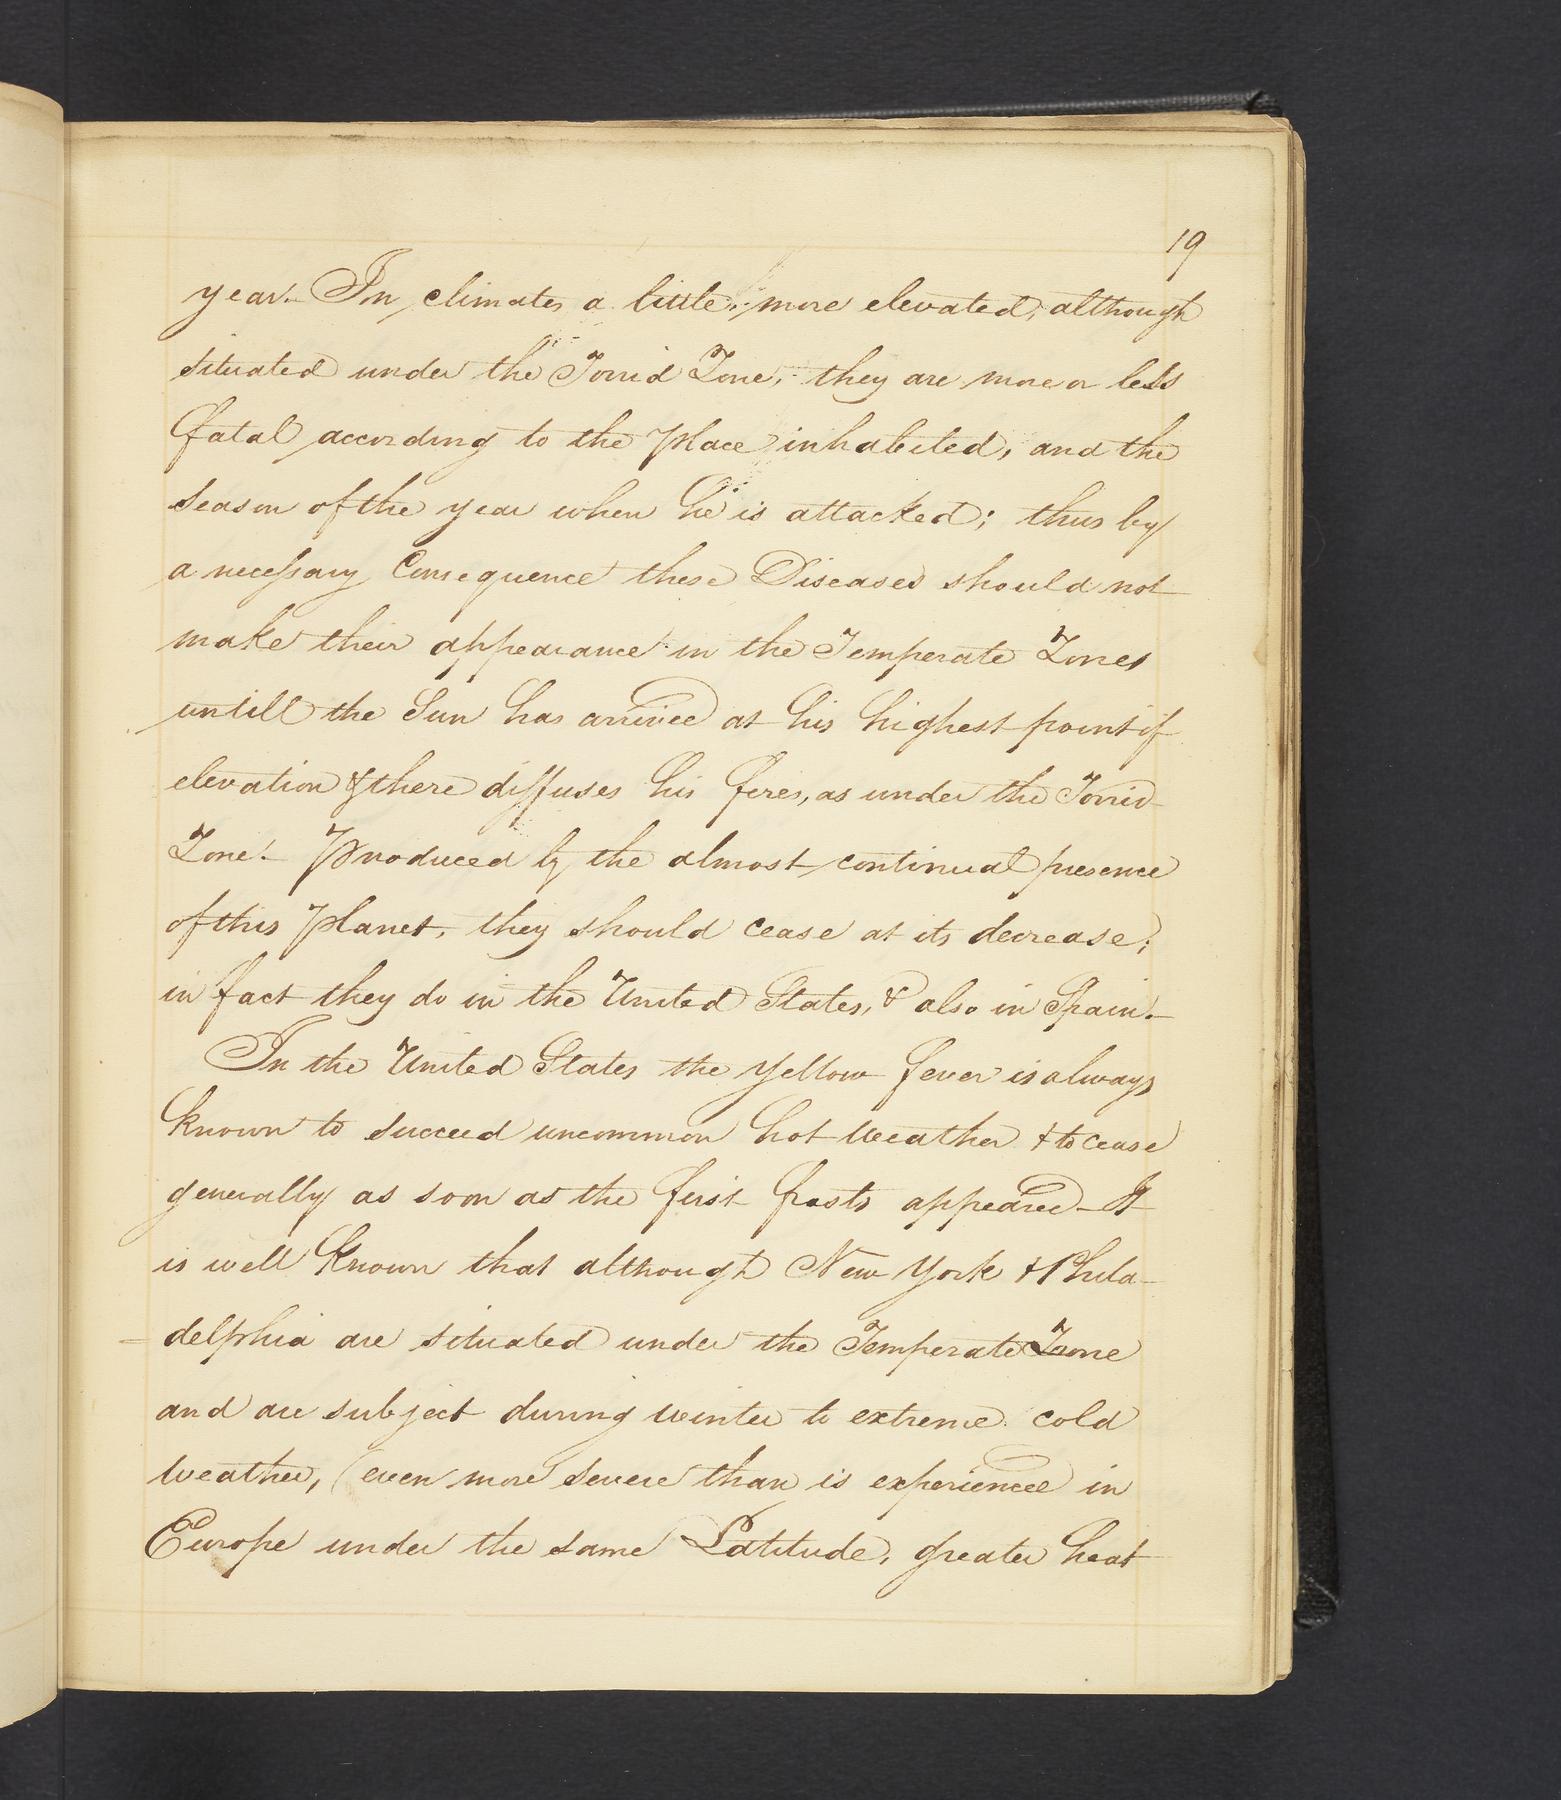 19
year. In climates a little more elevated, although
situated under the Torrid Zone, they are more or less
fatal according to the place inhabited, and the
season of the year when he is attacked; thus by
a necessary Consequence these Diseases should not
make their appearance in the Temperate Zones
untill the Sun has arrived at his highest point of
elevation & there diffuses his fires, as under the Torrid
Zone. Produced by the almost continual presence
of this Planet, they should cease at its decrease;
in fact they do in the United States, & also in Spain.
In the United States the yellow fever is always
known to succeed uncommon hot weather & to cease
generally as soon as the first frosts appeared - It
is well known that although New York & Phila-
delphia are situated under the Temperate Zone
and are subject during winter to extreme cold
weather, (even more severe than is experienced in
Europe under the same Latitude, greater heat